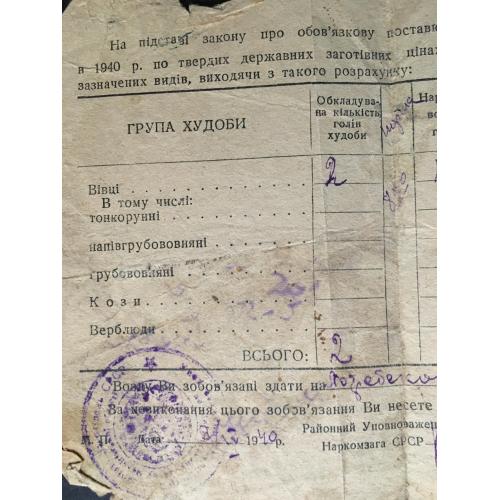 На підставі закону про обов'язкову постави
в 1940 р. по твердих державних заготівних цінах
зазначених видів, виходячи з такого розрахунку:
ГРУПА ХУДОБИ
Обкладува-
на кількість
голів
худоби
Нар
во
г
Вівці
2
В тому числі:
тонкорунні
напівгрубововняні
грубововняні
Кози
Верблюди
ВСЬОГО: 2
Вовну Ви зобов'язані здати на
За невиконання цього зобов'язання Ви несете
М. П. Дата 1940р.
Районний Уповноважен
Наркомзага СРСР